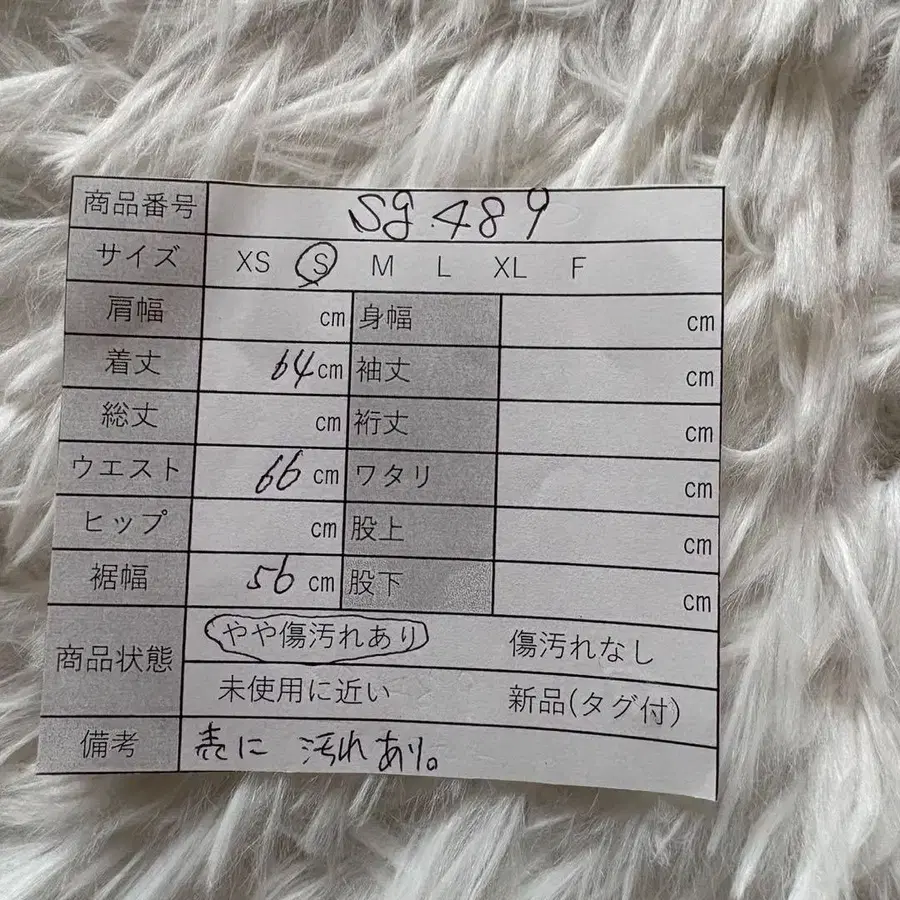 商品番号 Sg.489
サイズ XS S M L XL F
肩幅 cm 身幅 cm
着丈 64cm 袖丈 cm
総丈 cm 裄丈 cm
ウエスト 66 cm ワタリ cm
ヒップ cm 股上 cm
裾幅 56 cm 股下 cm
商品状態 やや傷汚れあり 傷汚れなし
未使用に近い 新品(タグ付)
備考 表に 汚れあり。